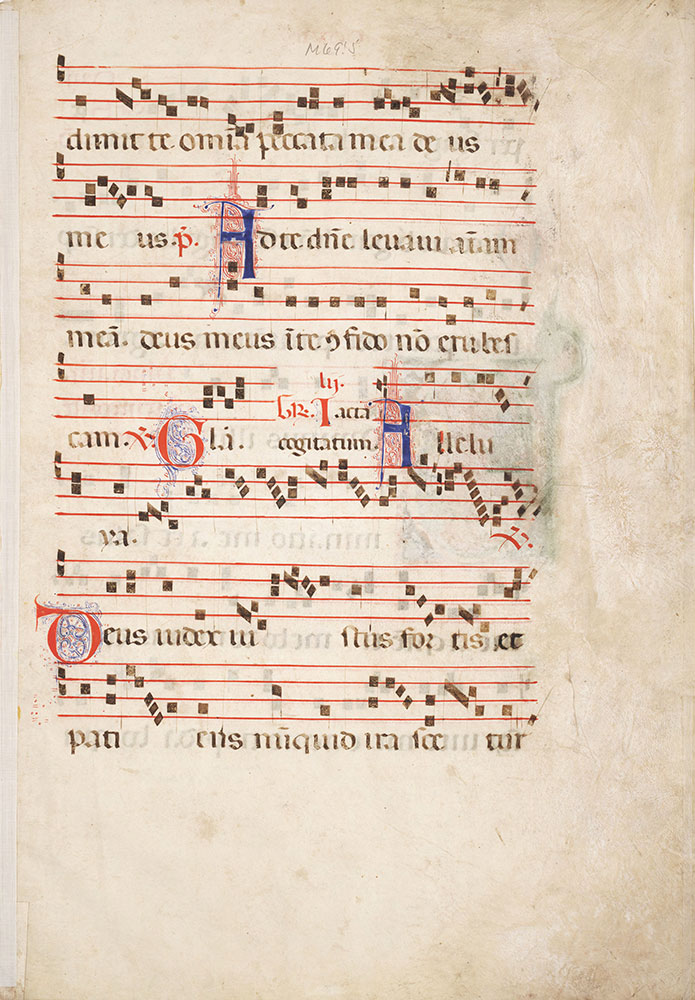 M69:5
dimitte omĩa peccata mea de us
me us. p̃. Ad te dñe levavi aĩam
meã. deus meus ĩte ꝯfido nõ erubes
cam ℣ Glã. GR. Iacta
cogitatum. Allelu
ya. ℣.
Deus iudex iu stus for tis et
pati ens nũquid ira sce tur